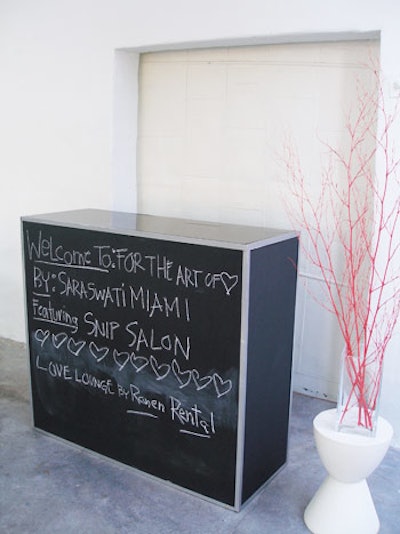 Welcome To: FOR THE ART OF ♡
By: SARASWATI MIAMI
Featuring SNIP SALON
♡♡♡♡♡♡♡♡♡♡
LOVE LOUNGE By Ronen Rental